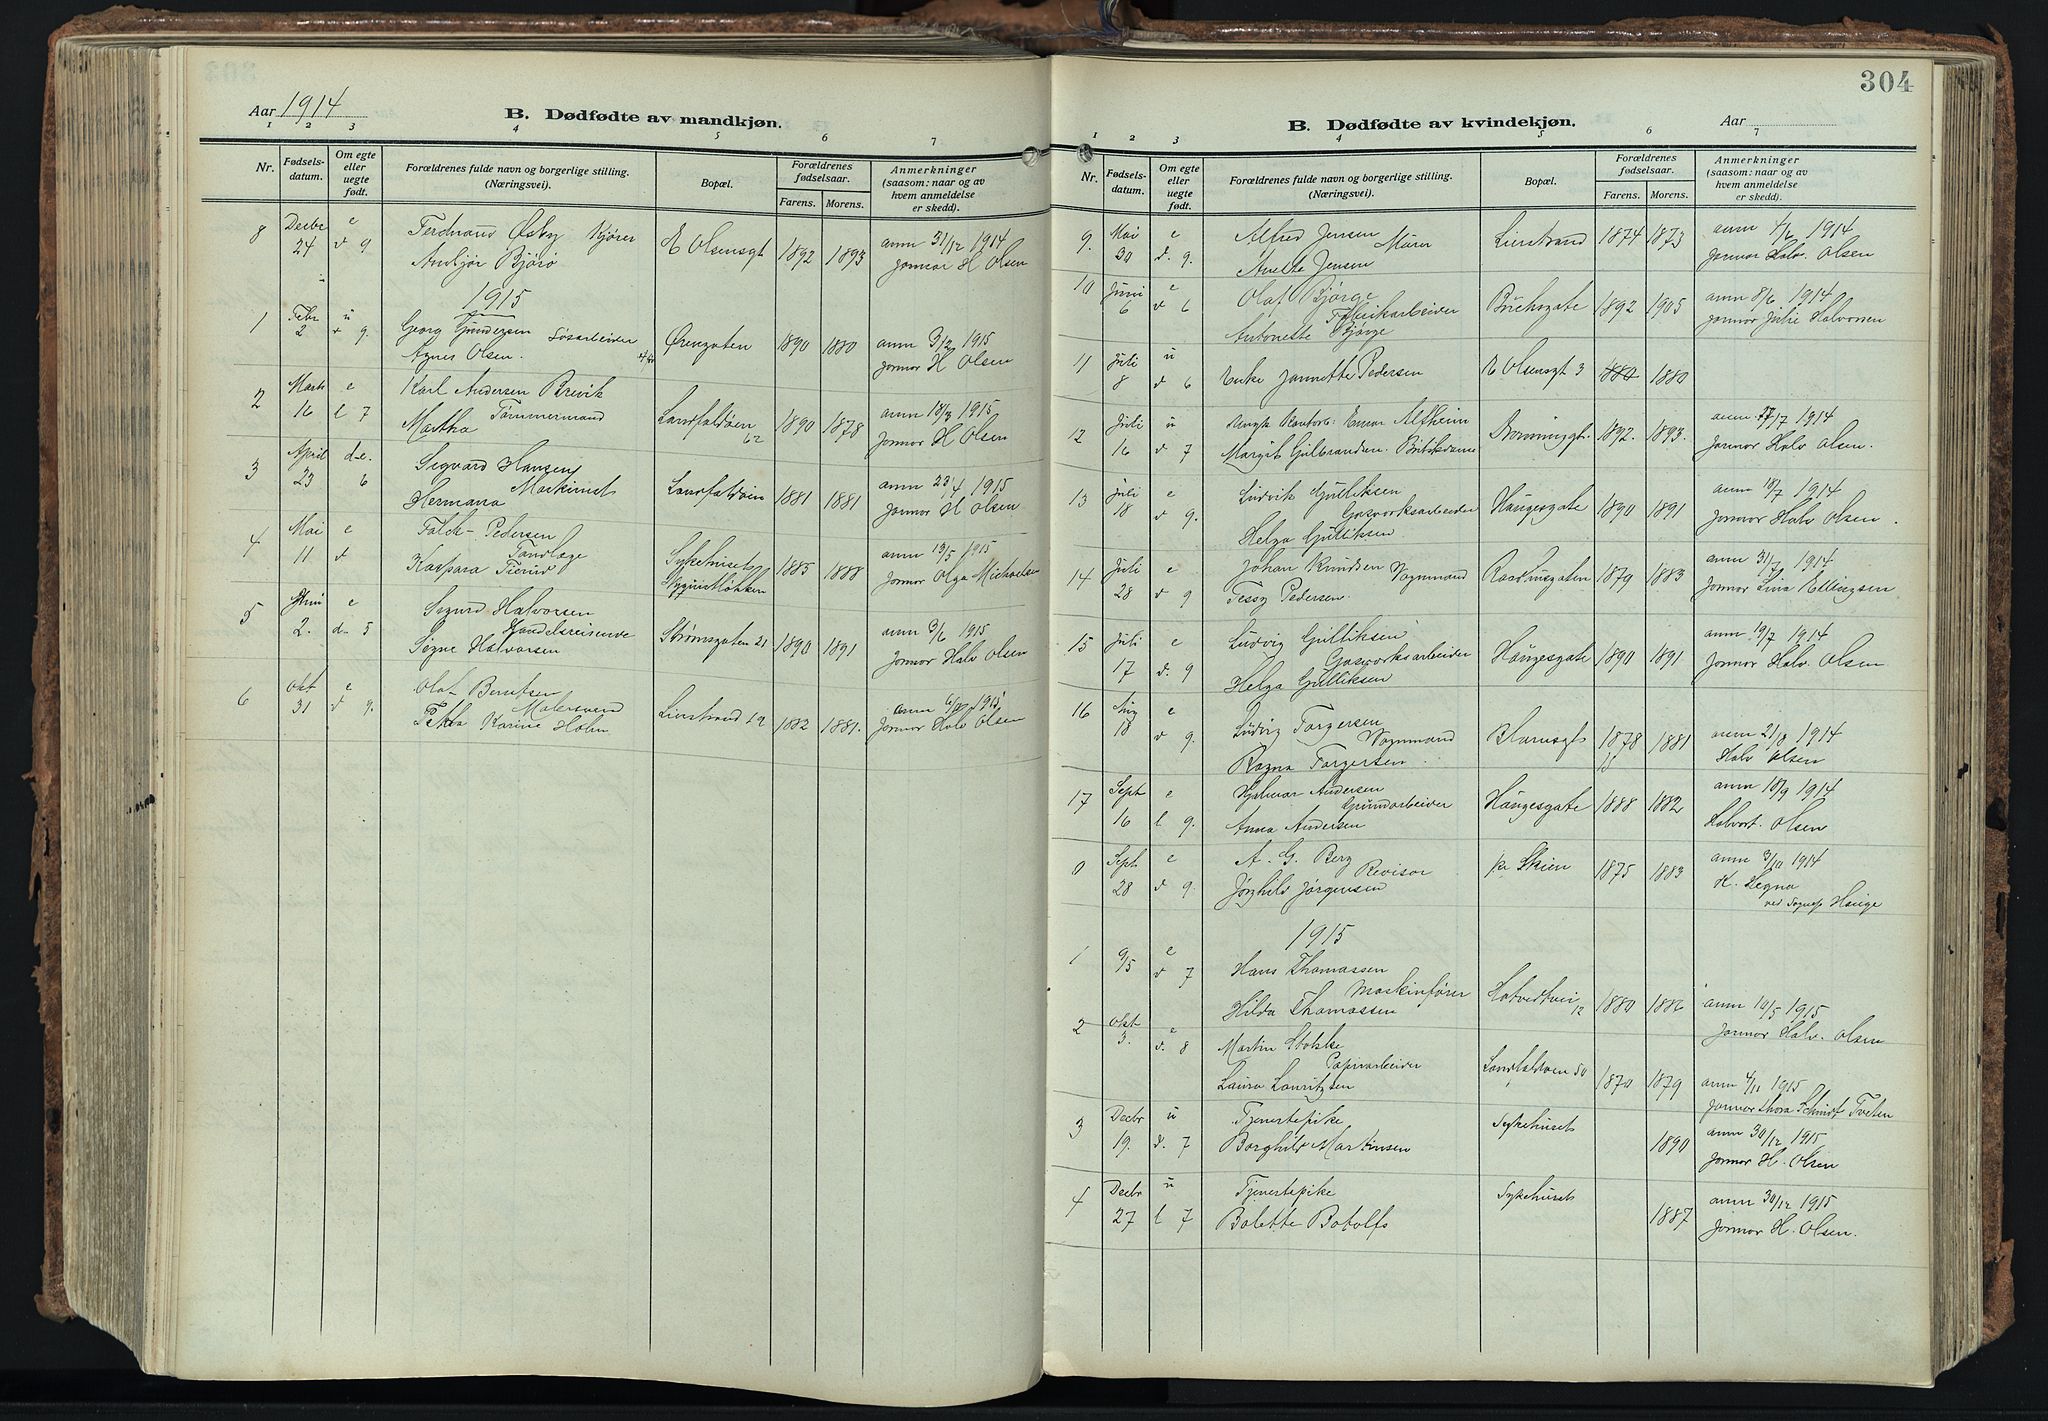 Aar 1914
B. Dødfødte av mandkjøn.
1 2 3 4 5 6 7
Nr.
Fødsels-
datum.
Om egte
eller
uegte
født.
Forældrenes fulde navn og borgerlige stilling.
(Næringsvei).
Bopæl.
Forældrenes
fødselsaar.
Farens. Morens.
Anmerkninger
(saasom: naar og av
hvem anmeldelse
er skedd).
8 Decbr e Ferdinand Kjører
24 d 9 E Olsensgt 1892 1893 anm 31/12 1914
jormor H Olsen
1915
1 Febr u Georg Gundersen
2 d 9. Agnes Olsen. Øvregaten 1890 1880 anm 3/2 1915
jormor H Olsen
2 Marts e Karl Andersen Brevik
16 l 7 Martha Tømmermand Landfaldøen 62 1890 1878 anm 18/3 1915
jormor H Olsen
3 April d-e. Sigvard Hansen
23 6 Hermana Maskinist Landfaldøen 1881 1881 anm 23/4 1915
jormor H Olsen
4 Mai e Falck-Pedersen
11 d Tandlæge
Kaspara Sykehuset 1885 1888 anm 13/5 1915
jormor Olga Michaelsen
5 Juni e Sigurd Halvorsen
2. d- 5 Handelsreisende
Signe Halvorsen Strømsgaten 21 1890 1891 anm 3/6 1915
jormor Halv Olsen
6 Okt e Olaf Berntsen
31 d 9. Malersvend
Karine Holm Lierstrand 1882 1881. anm 1915
jormor Halv Olsen
304
B. Dødfødte av kvindekjøn.
Aar
1 2 3 4 5 6 7
Nr.
Fødsels-
datum.
Om egte
eller
uegte
født.
Forældrenes fulde navn og borgerlige stilling.
(Næringsvei).
Bopæl.
Forældrenes
fødselsaar.
Farens. Morens.
Anmerkninger
(saasom: naar og av
hvem anmeldelse
er skedd).
9. Mai e Alfred Jensen Lierstrand 1874 1873 anm 4/6 1914
d. 9. Murer
Anette Jensen jormor Halv. Olsen
10 Juni e Olaf Bjørge
6 d 6 Fabrikarbeider 1892 1905 anm 8/6 1914
Antonette Bjørge jormor Julie Halvorsen
11 Juli u
8 d 6 Enke Jannette Pedersen E Olsensgt 3 1880 1880
12 Juli u Einar Altheim 1892. 1893. anm 17/7 1914
16 d 7 Margit Gulbrandsen. jormor Halv Olsen.
13 Juli e Ludvik Gulliksen
18 d 9. Gasverksarbeider Haugesgate 1890 1891 anm 18/7 1914
Helga Gulliksen jormor Halv Olsen.
14 Juli e Johan Knudsen Vognmand Raadhusgaten 1879 1883 anm 31/7 1914
28 d 9 Tessy Pedersen. jormor Lina Ellingsen
15 Juli e Ludvig Gulliksen
17 d. 9 Gasverksarbeider Haugesgate 1890 1891 anm 19/7 1914
Helga Gulliksen jormor Halv. Olsen
16 Aug e Ludvig Torgersen
18 d 9. Vognmand 1878 1881 anm 21/8 1914
Ragna Torgersen. Halv Olsen
17 Sept e Hjalmar Andersen
16 l 9. Grundarbeider Haugesgate 1888 1882 anm 18/9 1914
Anna Andersen Halvort. Olsen
0 Sept e A. G. Berg
28 d 9. Revisor pr Skien 1875 1883 anm 3/10 1914
Jørgensen K. Hegna
ved Sognep Hauge
1915
1 9/5 e Hans Thomassen
d 7 Maskinfører
Hilda Thomassen 12 1880 1886 anm 10/5 1915
jormor Halv. Olsen
2 Okt e Martin
3. d. 8 Papirarbeider Landfaldøen 50 1870 1879 anm 4/11 1915
Laura Lauritzen jormor Thora Schmidt Tveten
3 Decbr u Tjenestepike Sykehuset
19. d. 7 Borghild Martinsen 1890 anm 30/12 1915
jormor H. Olsen
4 Decbr u Tjenestepike Sykehuset
27 l 7 Bolette Botolfs 1887 anm 30/12 1915
jormor H. Olsen.